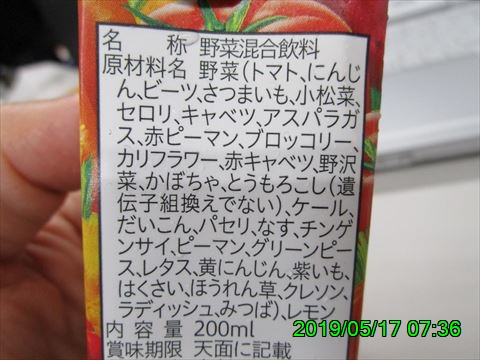 名称 野菜混合飲料
原材料名 野菜(トマト、にんじ
ん、ビーツ、さつまいも、小松菜、
セロリ、キャベツ、アスパラガ
ス、赤ピーマン、ブロッコリー、
カリフラワー、赤キャベツ、野沢
菜、かぼちゃ、とうもろこし(遺
伝子組換えでない)、ケール、
だいこん、パセリ、なす、チンゲ
ンサイ、ピーマン、グリーンピー
ス、レタス、黄にんじん、紫いも、
はくさい、ほうれん草、クレソン、
ラディッシュ、みつば)、レモン
内容量 200ml
賞味期限 天面に記載
2019/05/17 07:36